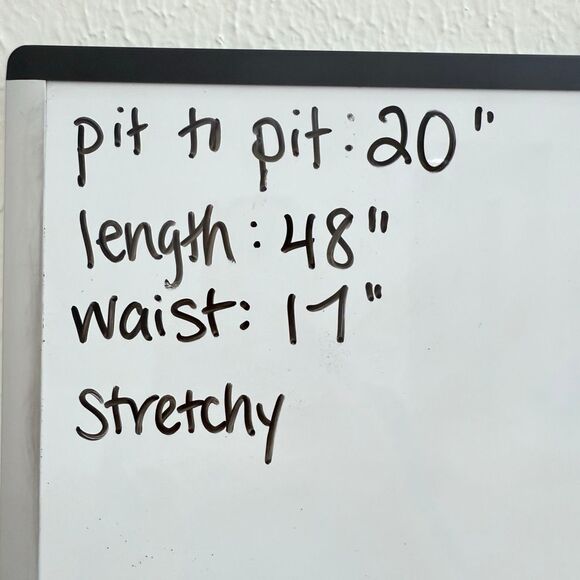 pit to pit: 20"
length: 48"
waist: 17"
stretchy